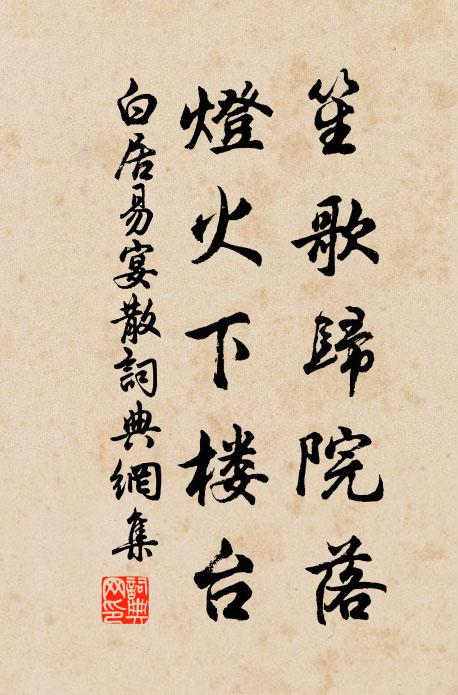 笙歌歸院落
燈火下楼台
白居易宴散詞典網集
詞典网印